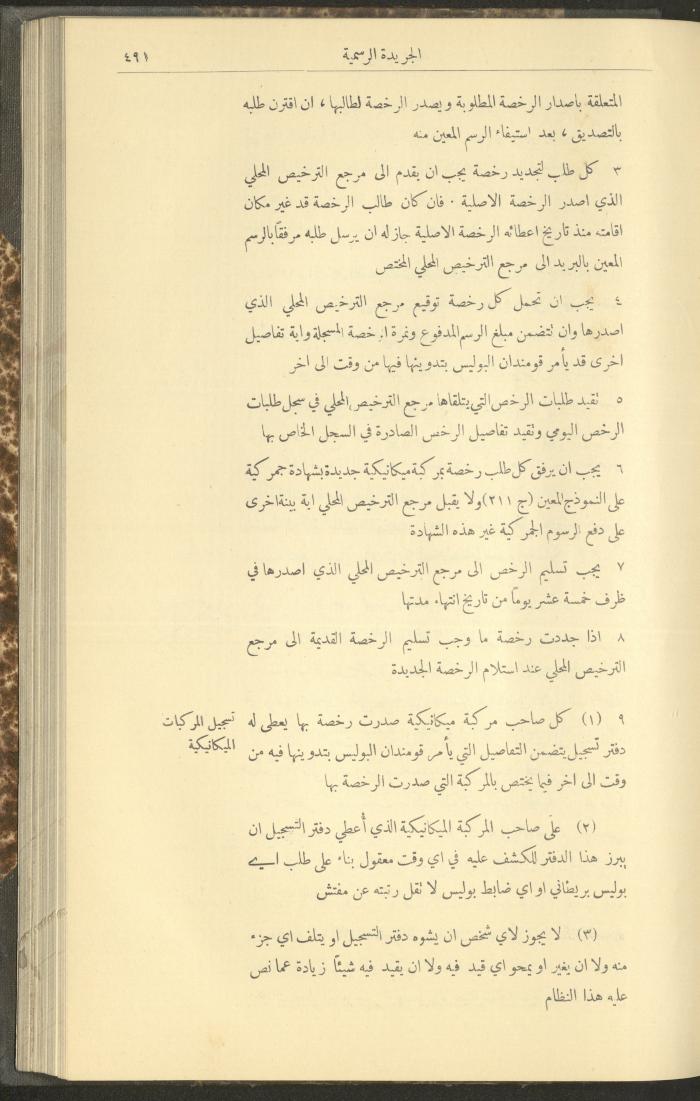 الجريدة الرسمية
٤٩١
المتعلقة باصدار الرخصة المطلوبة ويصدر الرخصة لطالبها ، ان اقترن طلبه
بالتصديق ، بعد استيفاء الرسم المعين منه
٣ كل طلب لتجديد رخصة يجب ان يقدم الى مرجع الترخيص المحلي
الذي اصدر الرخصة الاصلية . فان كان طالب الرخصة قد غير مكان
اقامته منذ تاريخ اعطائه الرخصة الاصلية جاز له ان يرسل طلبه مرفقاً بالرسم
المعين بالبريد الى مرجع الترخيص المحلي المختص
٤ يجب ان تحمل كل رخصة توقيع مرجع الترخيص المحلي الذي
اصدرها وان لتضمن مبلغ الرسم المدفوع ونمرة الرخصة المسجلة واية تفاصيل
اخرى قد يأمر قومندان البوليس بتدوينها فيها من وقت الى اخر
٥ تقيد طلبات الرخص التي يتلقاها مرجع الترخيص المحلي في سجل طلبات
الرخص اليومي وتقيد تفاصيل الرخص الصادرة في السجل الخاص بها
٦ يجب ان يرفق كل طلب رخصة بمركبة ميكانيكية جديدة بشهادة جمركية
على النموذج المعين (ج ٢١١) ولا يقبل مرجع الترخيص المحلي اية بينة اخرى
على دفع الرسوم الجمركية غير هذه الشهادة
٧ يجب تسليم الرخص الى مرجع الترخيص المحلي الذي اصدرها في
ظرف خمسة عشر يوماً من تاريخ انتهاء مدتها
٨ اذا جددت رخصة ما وجب تسليم الرخصة القديمة الى مرجع
الترخيص المحلي عند استلام الرخصة الجديدة
تسجيل المركبات
الميكانيكية
٩ (١) كل صاحب مركبة ميكانيكية صدرت رخصة بها يعطى له
دفتر تسجيل يتضمن التفاصيل التي يأمر قومندان البوليس بتدوينها فيه من
وقت الى اخر فيما يختص بالمركبة التي صدرت الرخصة بها
(٢) على صاحب المركبة الميكانيكية الذي أُعطي دفتر التسجيل ان
يبرز هذا الدفتر للكشف عليه في اي وقت معقول بناء على طلب اي
بوليس بريطاني او اي ضابط بوليس لا تقل رتبته عن مفتش
(٣) لا يجوز لاي شخص ان يشوه دفتر التسجيل او يتلف اي جزء
منه ولا ان يغير او يمحو اي قيد فيه ولا ان يقيد فيه شيئاً زيادة عما نص
عليه هذا النظام